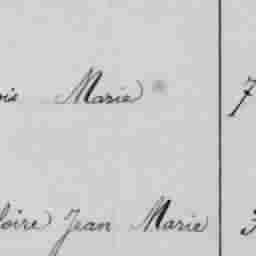 ois Marie 7
loire Jean Marie 3